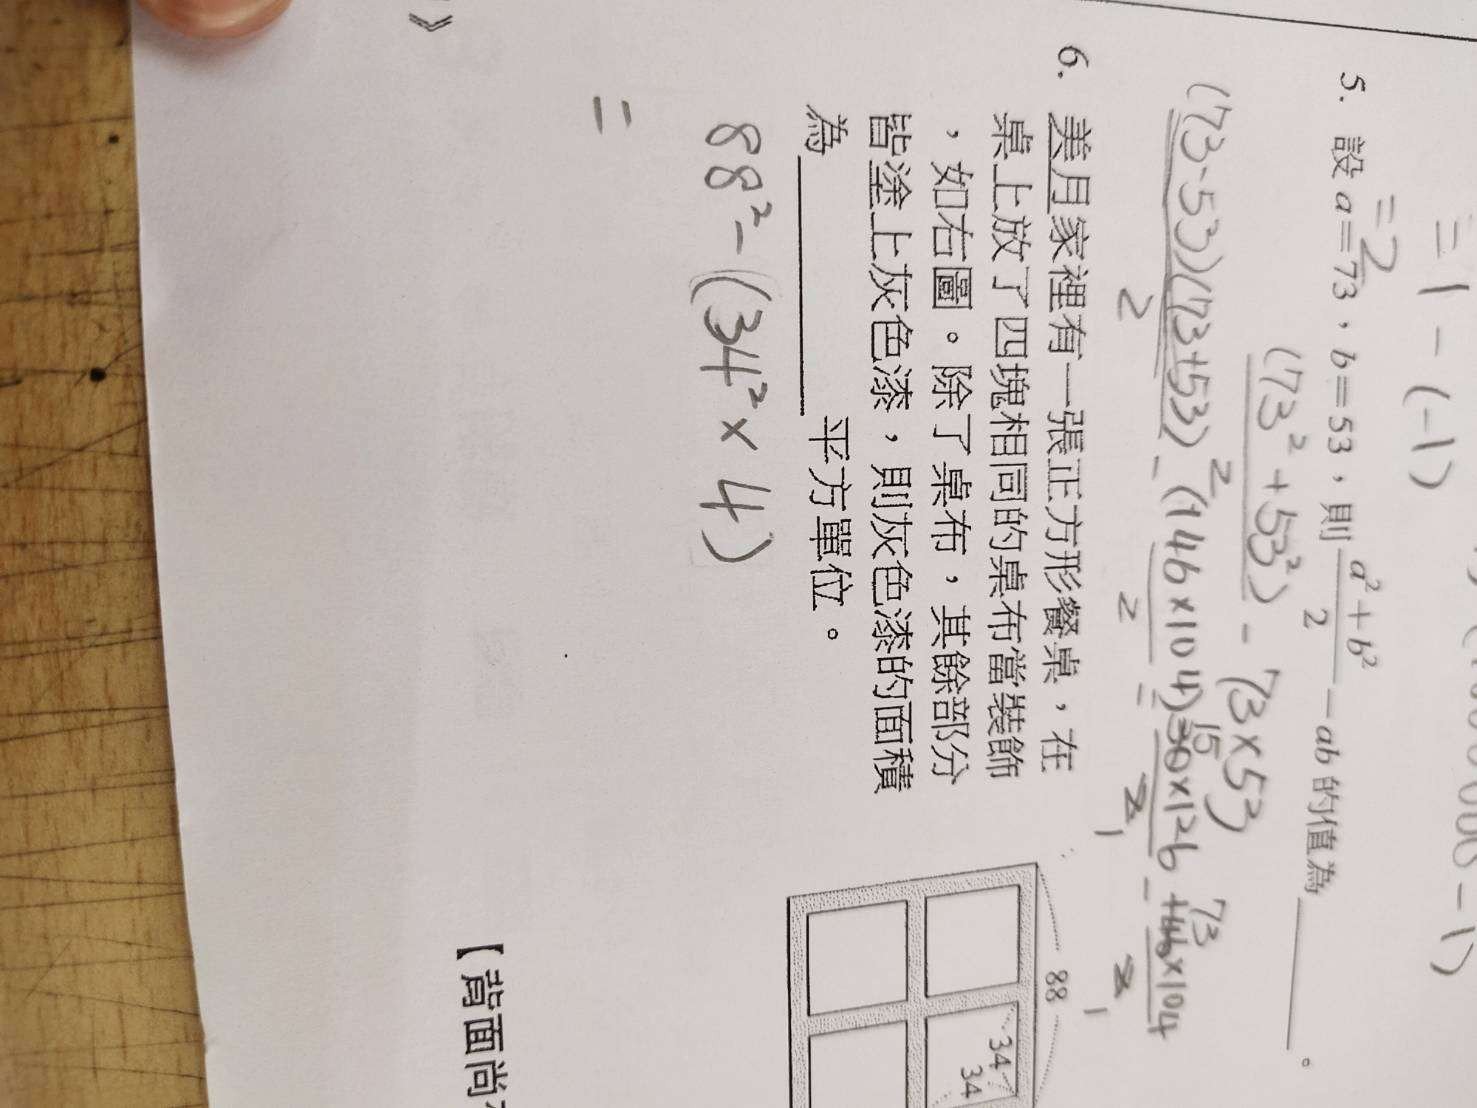 = 1 - (-1)
= 2
5. 設 a=73,b=53,則 a²+b²/2 -ab 的值為 。
(73²+53²)/2 - (73×53)
(73-53)(73+53)/2 - (146×104)/2 = 
15
73
6. 美月家裡有一張正方形餐桌,在
桌上放了四塊相同的桌布當裝飾
,如右圖。除了桌布,其餘部分
皆塗上灰色漆,則灰色漆的面積
為 平方單位。
88
34
34
88²-(34²×4)
=
》
【背面尚